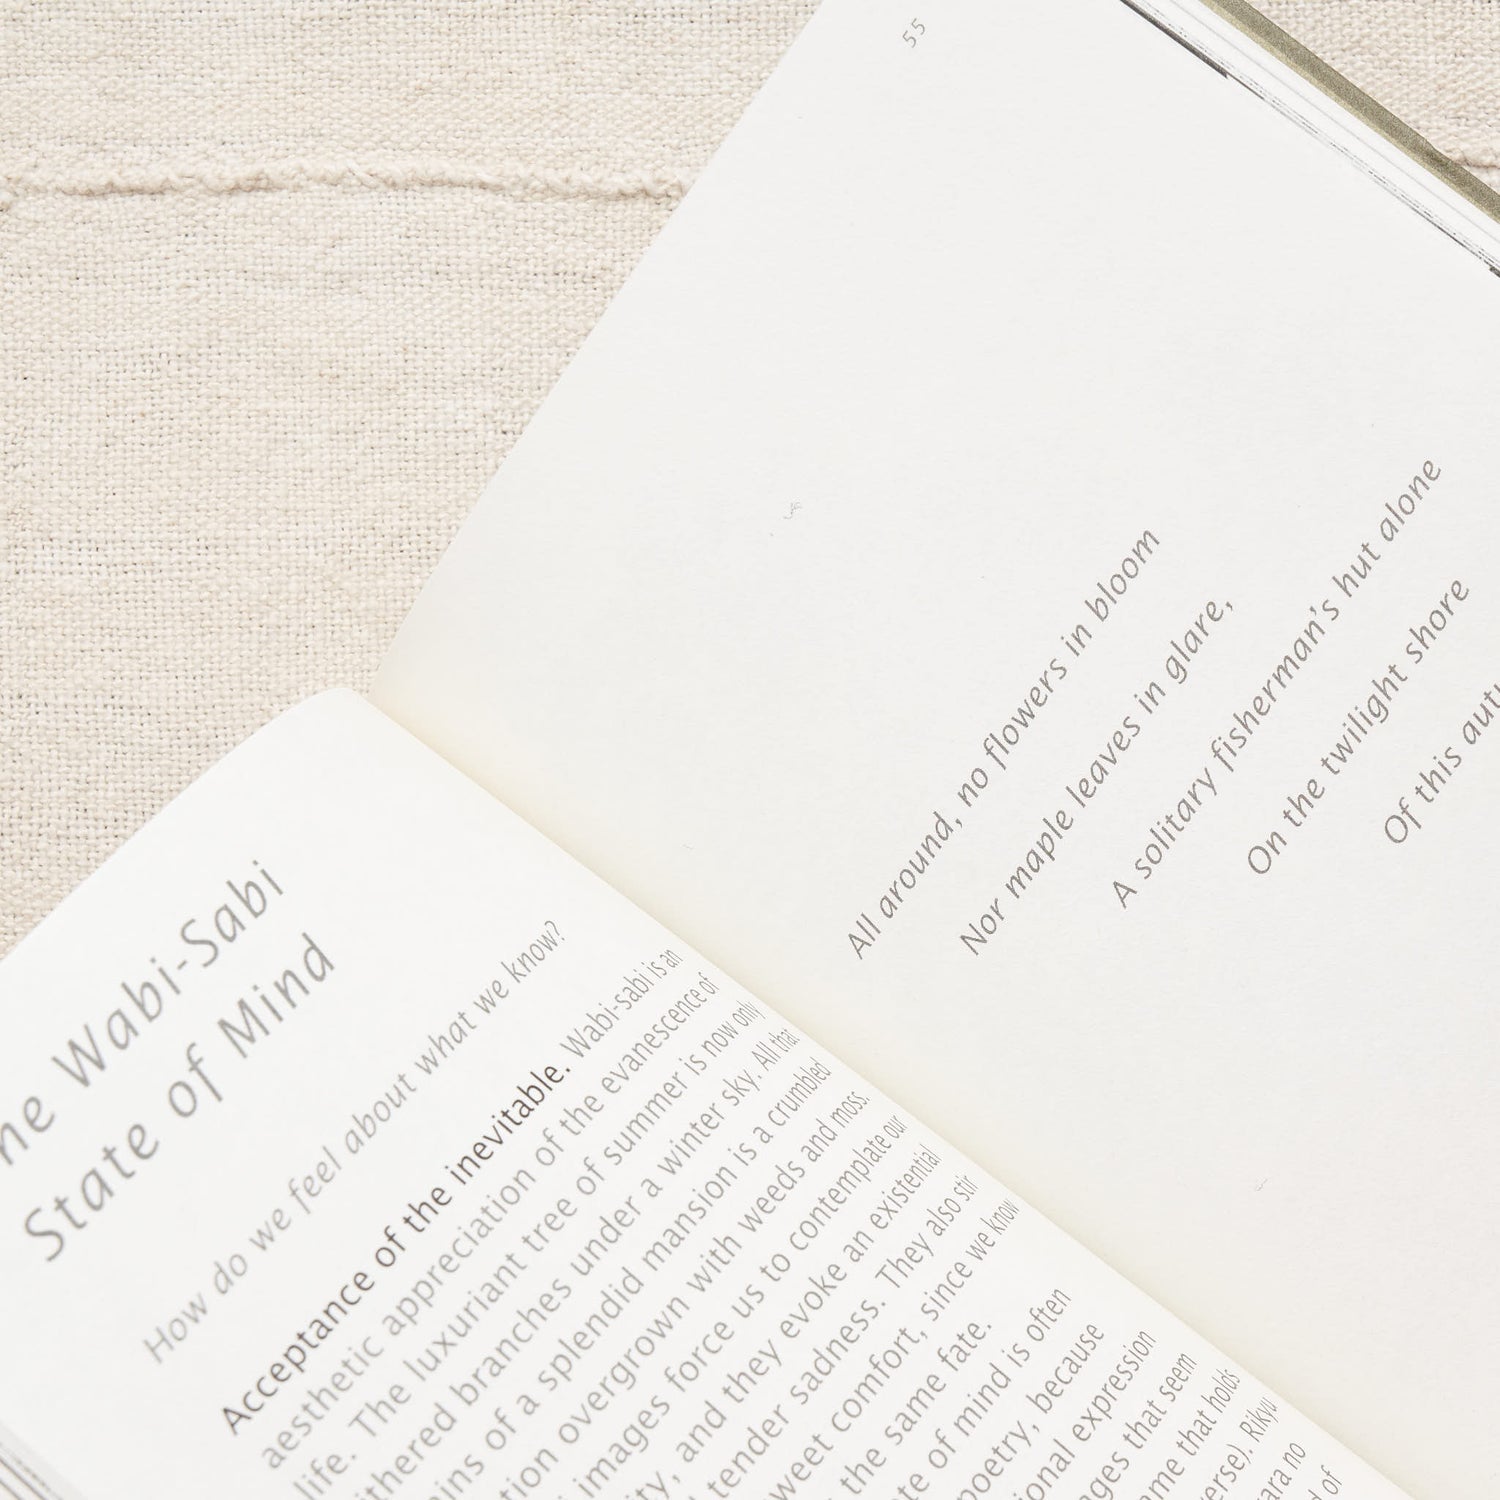 The Wabi-Sabi
State of Mind
How do we feel about what we know?
Acceptance of the inevitable. Wabi-sabi is an
aesthetic appreciation of the evanescence of
life. The luxuriant tree of summer is now only
branches under a winter sky. All that
of a splendid mansion is a crumbled
overgrown with weeds and moss.
images force us to contemplate our
and they evoke an existential
tender sadness. They also stir
comfort, since we know
the same fate.
of mind is often
poetry, because
expression
that seem
that holds
Rikyu
no
of
55
All around, no flowers in bloom
Nor maple leaves in glare,
A solitary fisherman's hut alone
On the twilight shore
Of this